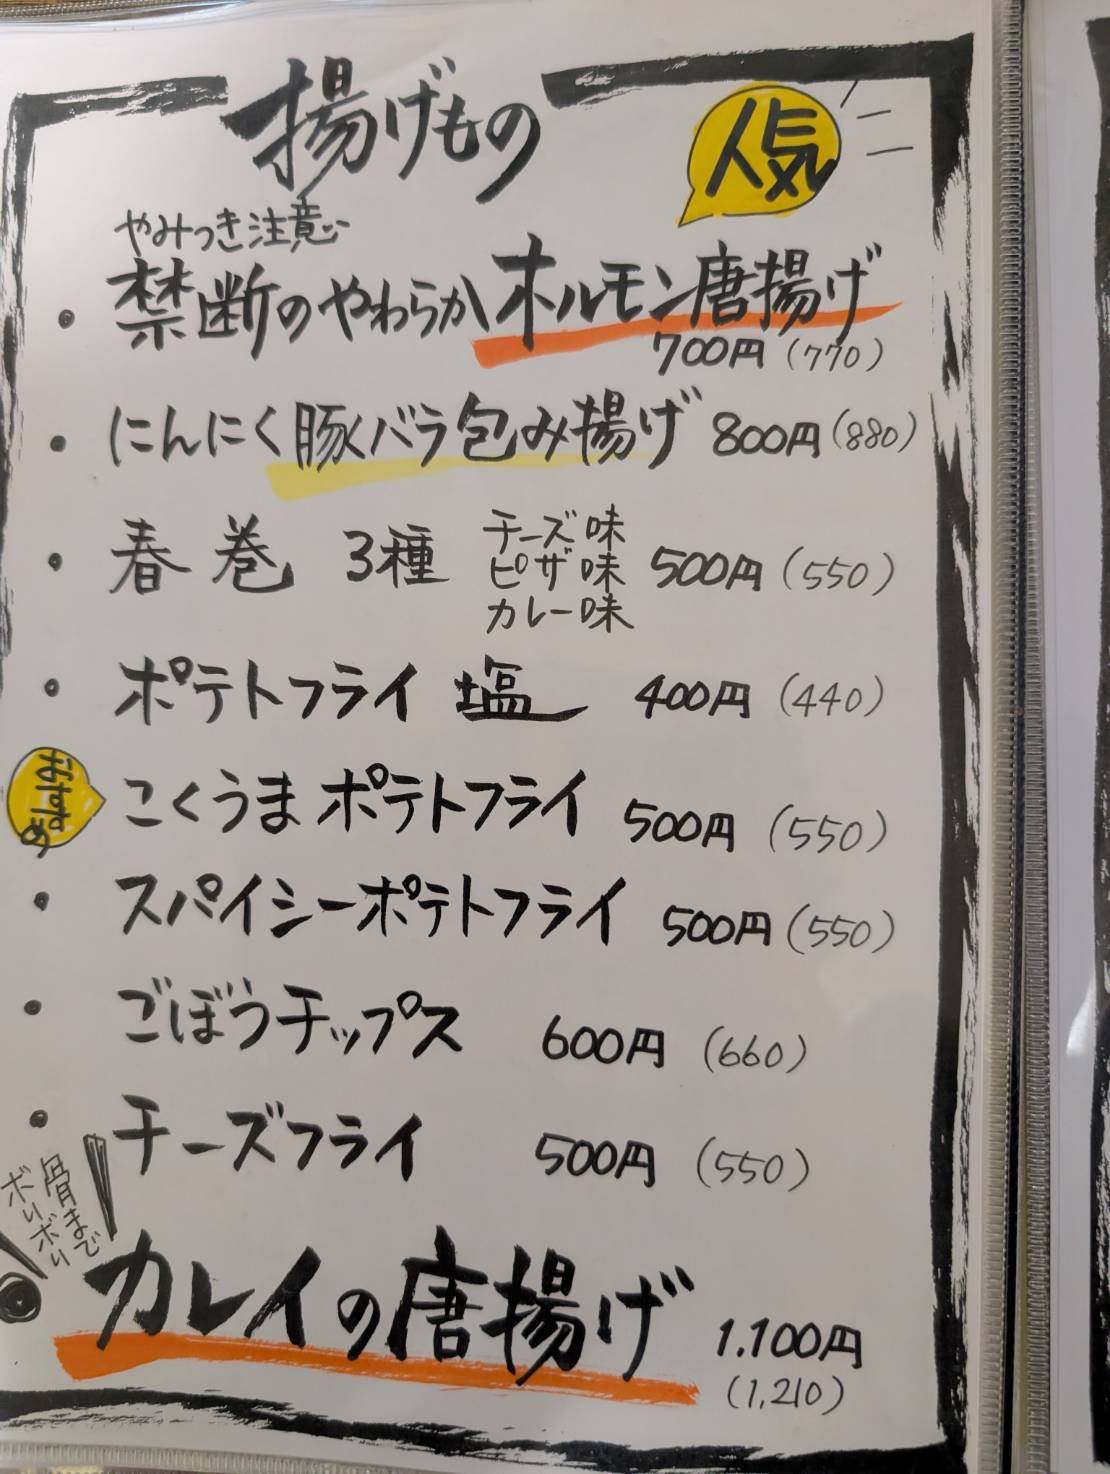 揚げもの
人気
やみつき注意
・禁断のやわらかホルモン唐揚げ
700円(770)
・にんにく豚バラ包み揚げ 800円(880)
・春巻 3種 チーズ味 ピザ味 カレー味 500円(550)
・ポテトフライ 塩 400円(440)
おすすめ
こくうまポテトフライ 500円(550)
・スパイシーポテトフライ 500円(550)
・ごぼうチップス 600円(660)
・チーズフライ 500円(550)
骨まで
ボリボリ
カレイの唐揚げ 1.100円
(1,210)